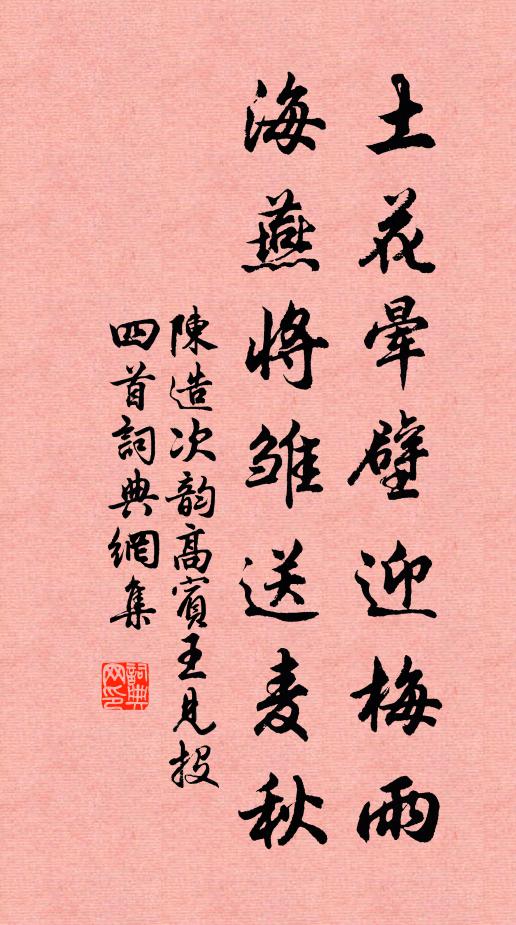 土花暈壁迎梅雨
海燕將雛送麦秋
陳造次韵高賓王見投
四首詞典網集
詞典網印